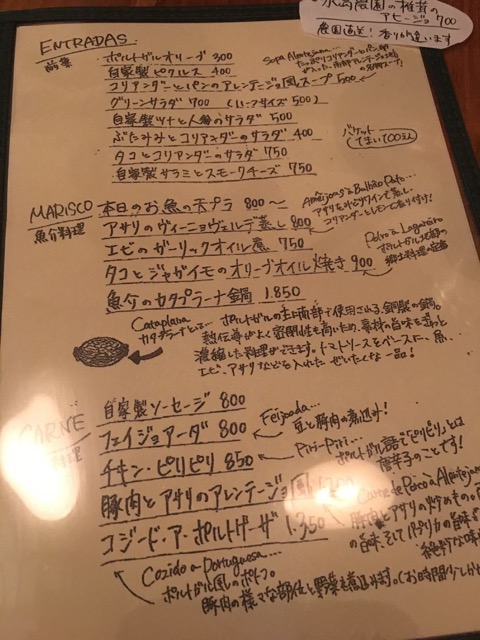 永島農園の椎茸の
アヒージョ 700
農園直送！香りが違います
ENTRADAS
前菜
ポルトガルオリーブ 300
自家製ピクルス 400
コリアンダーとパンのアレンテージョ風スープ 500
Sopa Alentejana...
グリーンサラダ 700 (ハーフサイズ 500)
自家製ツナと人参のサラダ 500
ぶたみみとコリアンダーのサラダ 400
タコとコリアンダーのサラダ 750
自家製サラミとスモークチーズ 750
バケット
MARISCO
魚介料理
本日のお魚の天プラ 800～
アサリのヴィーニョヴェルデ蒸し 800
Amêijoas à Bulhão Pato...
アサリをみどりワインで蒸し、
コリアンダーとレモンで香り付け！
エビのガーリックオイル煮 750
タコとジャガイモのオリーブオイル焼き 900
Polvo à Lagareiro
郷土料理の定番
魚介のカタプラーナ鍋 1.850
Cataplana
カタプラーナとは... ポルトガルの主に南部で使用される、銅製の鍋。
熱伝導がよく密閉性も高いため、素材の旨味を
濃縮した料理ができます。トマトソースをベースに、魚、
エビ、アサリなどを入れた ぜいたくな一品！
CARNE
料理
自家製ソーセージ 800
フェイジョアーダ 800
Feijoada...
豆と豚肉の煮込み！
チキン・ピリピリ 850
Piri-Piri...
ポルトガル語で「ピリピリ」とは
唐辛子のことです！
豚肉とアサリのアレンテージョ風
Carne de Porco à Alentejana
豚肉とアサリの炒めもの。
の旨味、そしてパプリカの旨味
絶妙な味
コジード・ア・ポルトゲーザ 1.350
Cozido à Portuguesa...
ポルトガル風のポトフ。
豚肉の様々な部位と野菜を煮込みます。(お時間少し